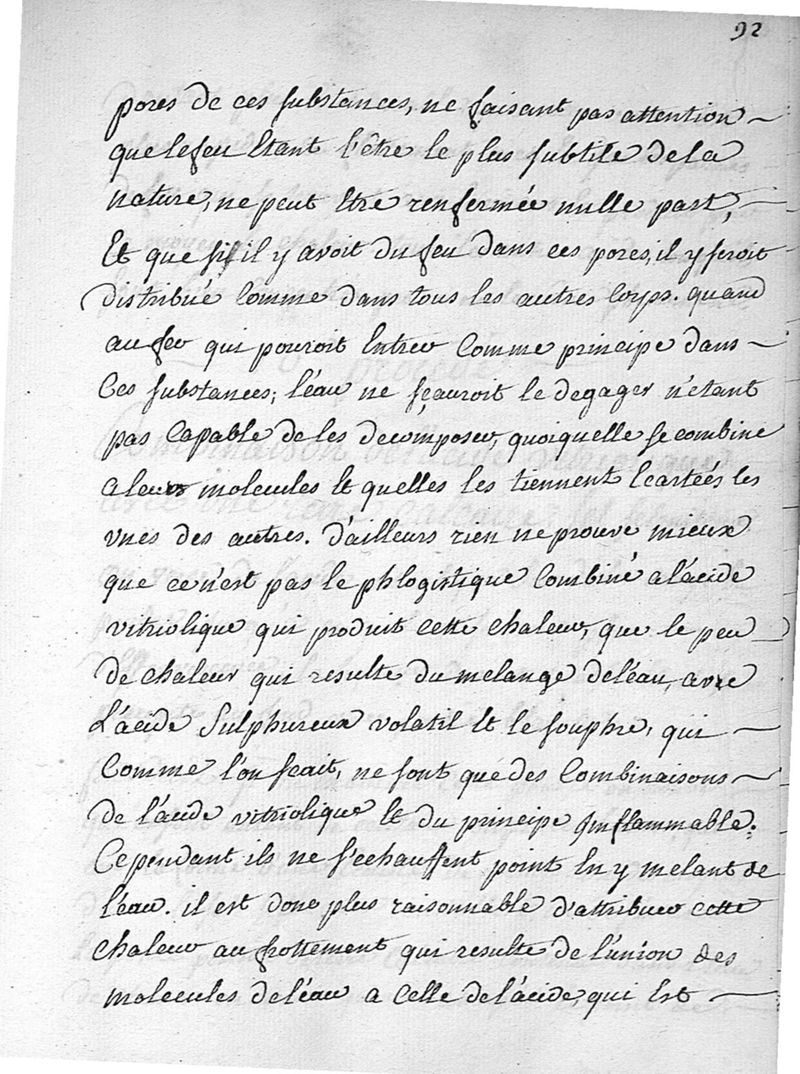 92
pores de ces substances, ne faisant pas attention
que le feu Etant l'être le plus subtile de la
nature, ne peut Etre renfermée nulle part,
Et que s'il y avoit du feu dans ces pores, il y seroit
distribué Comme dans tous les autres Corps. quand
au feu qui pouroit Entrer Comme principe dans
Ces substances; l'eau ne sçauroit le degager n'etant
pas Capable de les decomposer, quoiquelle se combine
a leurs molecules Et quelles les tiennent Ecartées les
unes des autres. d'ailleurs rien ne prouve mieux
que ce n'est pas le phlogistique Combiné a l'acide
vitriolique qui produit cette chaleur, que le peu
de chaleur qui resulte du melange de l'éau, avec
L'acide Sulphureux volatil Et le souphre, qui
Comme l'on sçait, ne sont que des Combinaisons
de l'acide vitriolique Et du principe Inflammable.
Cependant ils ne s'echauffent point En y melant de
l'éau. il est donc plus raisonnable d'attribuer cette
Chaleur au frottement qui resulte de l'union des
molecules de l'éau a Celle de l'acide, qui Est